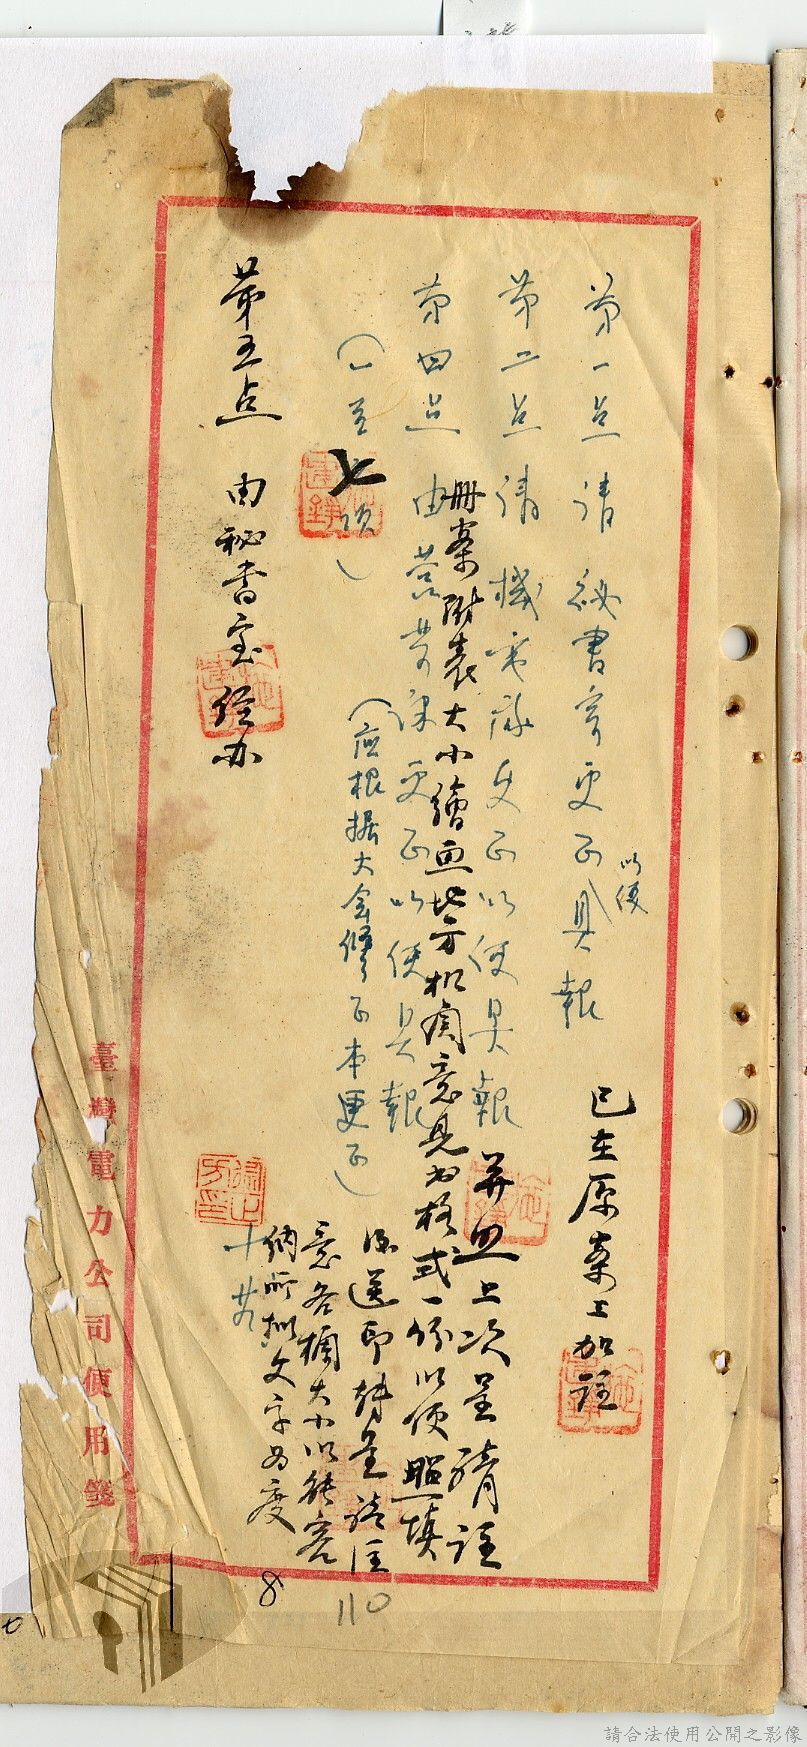 第一点 請秘書室更正以便具報 已在原案上加註
第二点 請機電課更正以便具報 并照上次呈請註
冊案附表大小繪一照地方机関意見書格式一份以便照填
第四点 由營業課更正以便具報
後送印轉呈請註
(一至七項) (应根据大会修正本更正)
意各欄大小以能容
納所擬文字為度
第五点 由秘書室經办
臺灣電力公司便用箋
110
請合法使用公開之影像